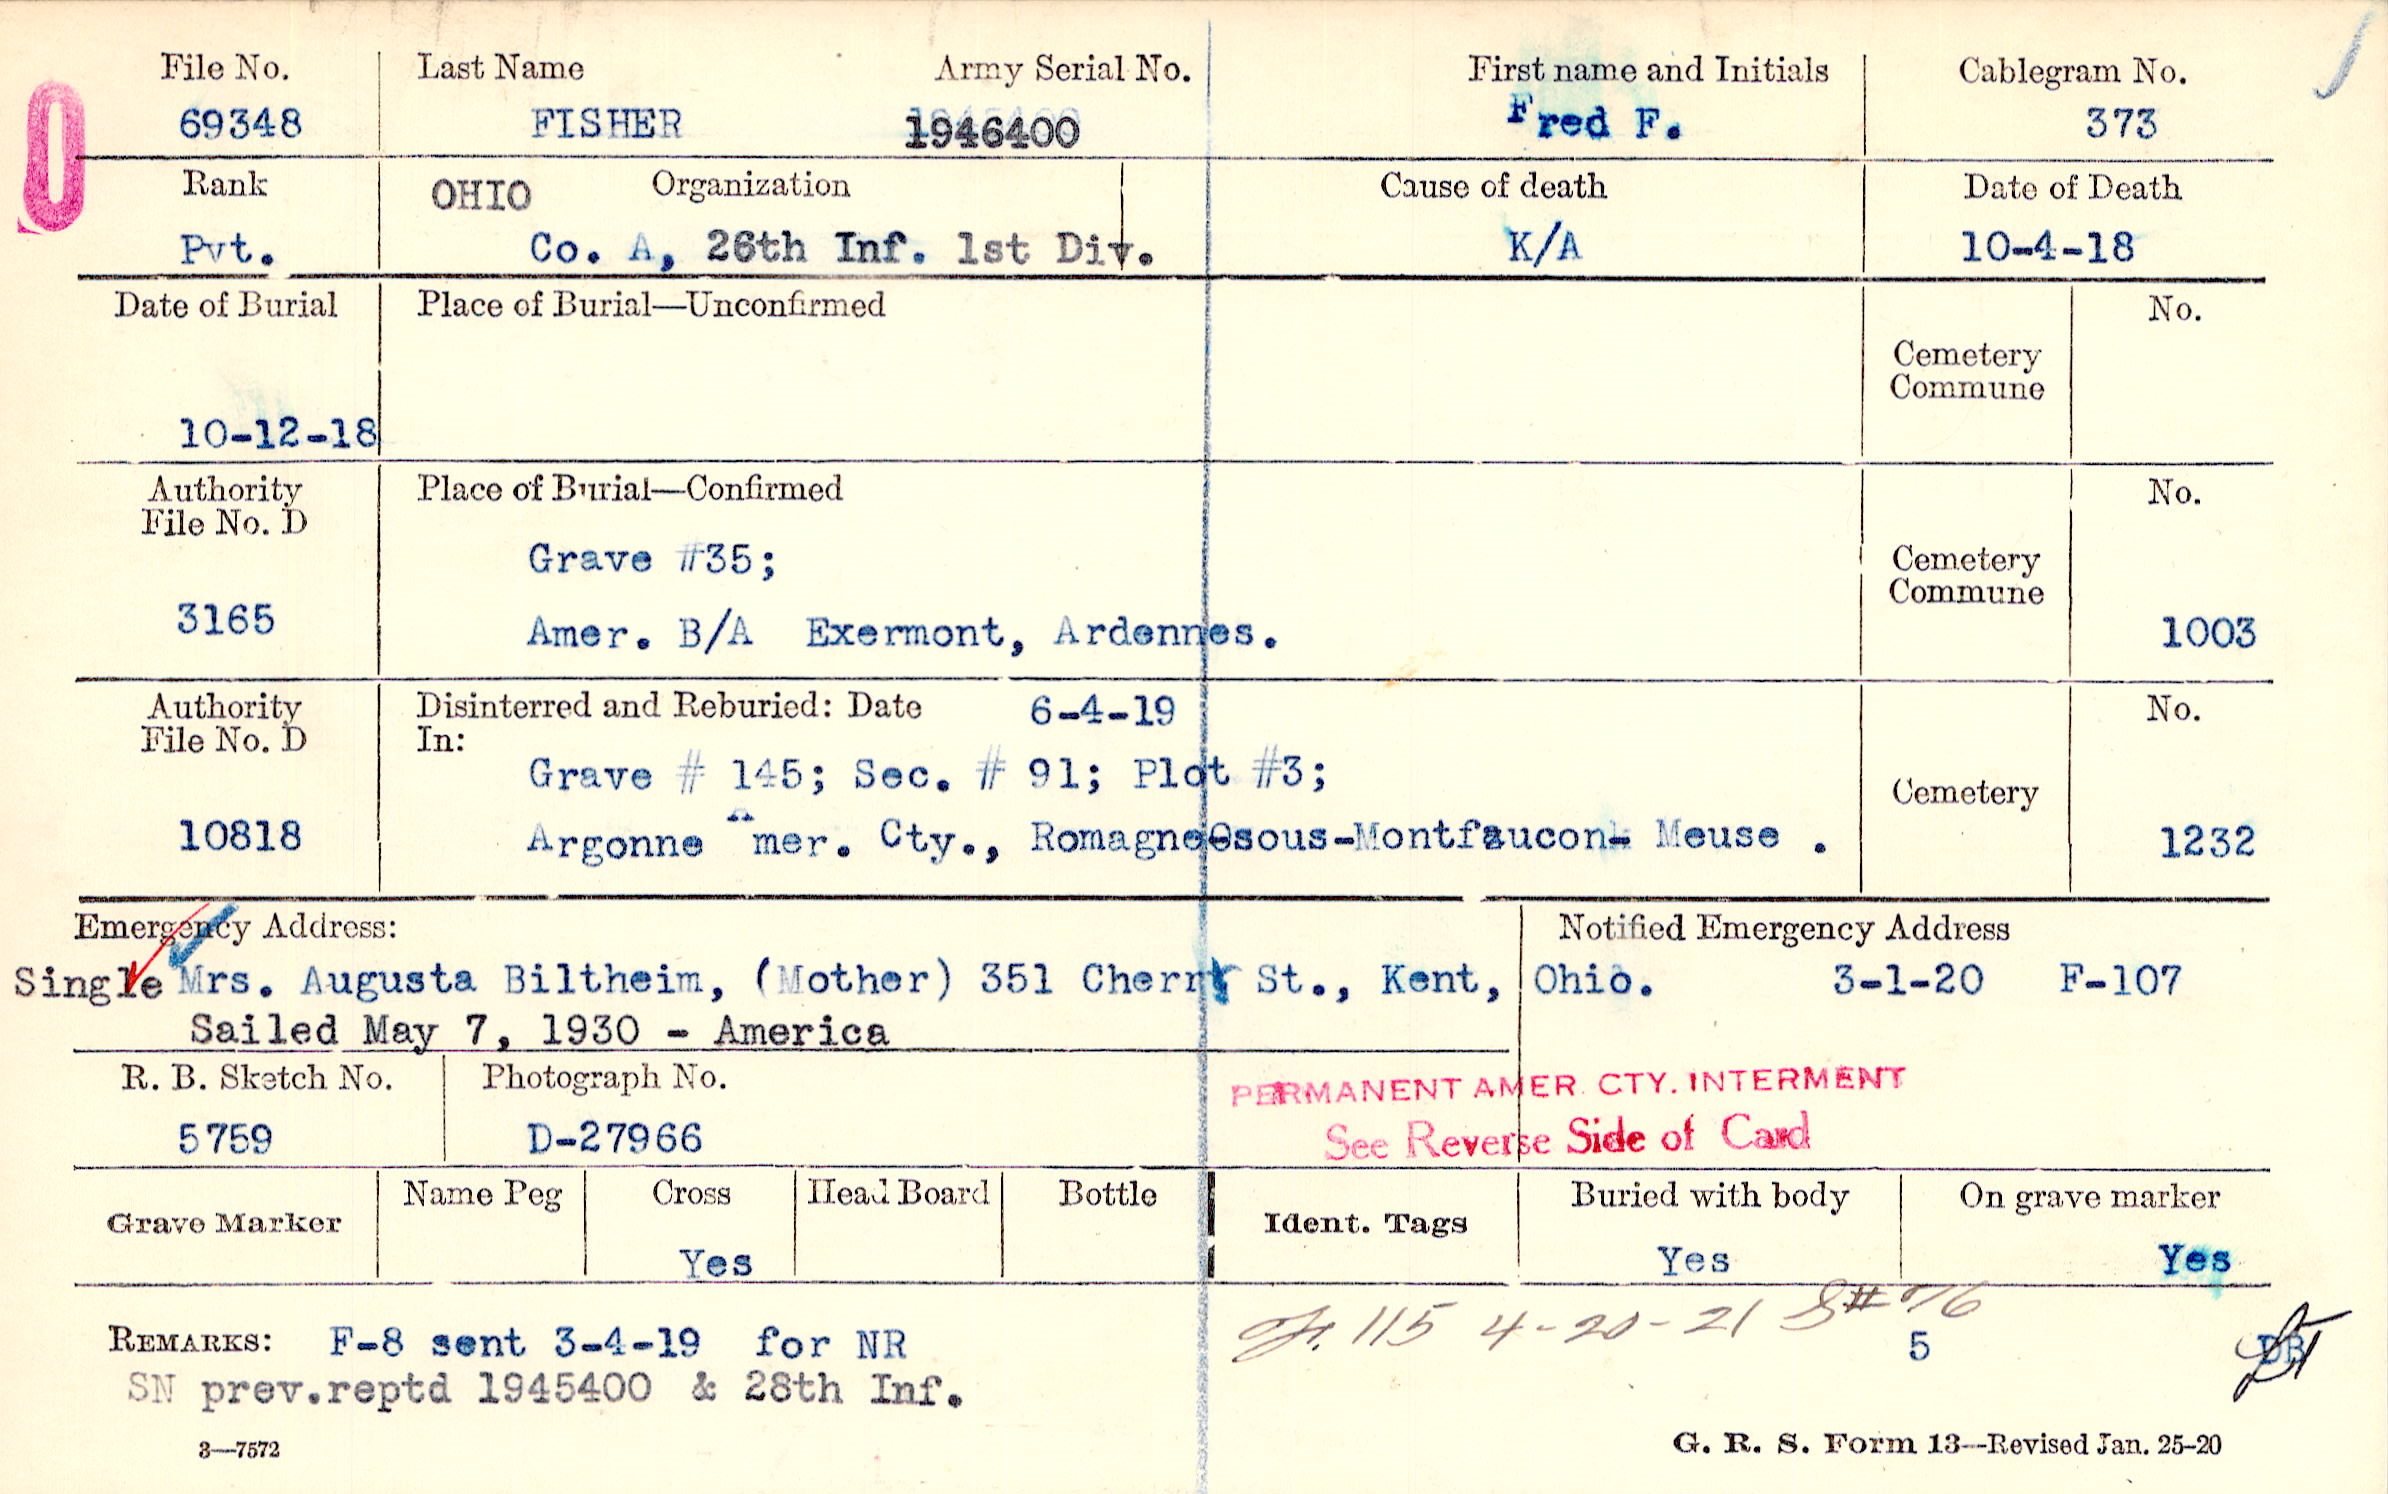 File No. Last Name Army Serial No. First name and Initials Cablegram No.
69348 FISHER 1946400 Fred F. 373
Rank OHIO Organization Cause of death Date of Death
Pvt. Co. A, 26th Inf. 1st Div. K/A 10-4-18
Date of Burial Place of Burial—Unconfirmed No.
Cemetery
Commune
10-12-18
Authority Place of Burial—Confirmed No.
File No. D
Grave #35; Cemetery
Commune
3165 Amer. B/A Exermont, Ardennes. 1003
Authority Disinterred and Reburied: Date 6-4-19 No.
File No. D In:
Grave # 145; Sec. # 91; Plot #3;
Cemetery
10818 Argonne Amer. Cty., Romagne-sous-Montfaucon- Meuse . 1232
Emergency Address: Notified Emergency Address
Single Mrs. Augusta Biltheim, (Mother) 351 Cherry St., Kent, Ohio. 3-1-20 F-107
Sailed May 7, 1930 - America
R. B. Sketch No. Photograph No. PERMANENT AMER. CTY. INTERMENT
5759 D-27966 See Reverse Side of Card
Grave Marker Name Peg Cross Head Board Bottle Ident. Tags Buried with body On grave marker
Yes Yes Yes
115 4-20-21 S# 76
REMARKS: F-8 sent 3-4-19 for NR 5 DB
SN prev.reptd 1945400 & 28th Inf.
3—7572 G. R. S. Form 13—Revised Jan. 25-20